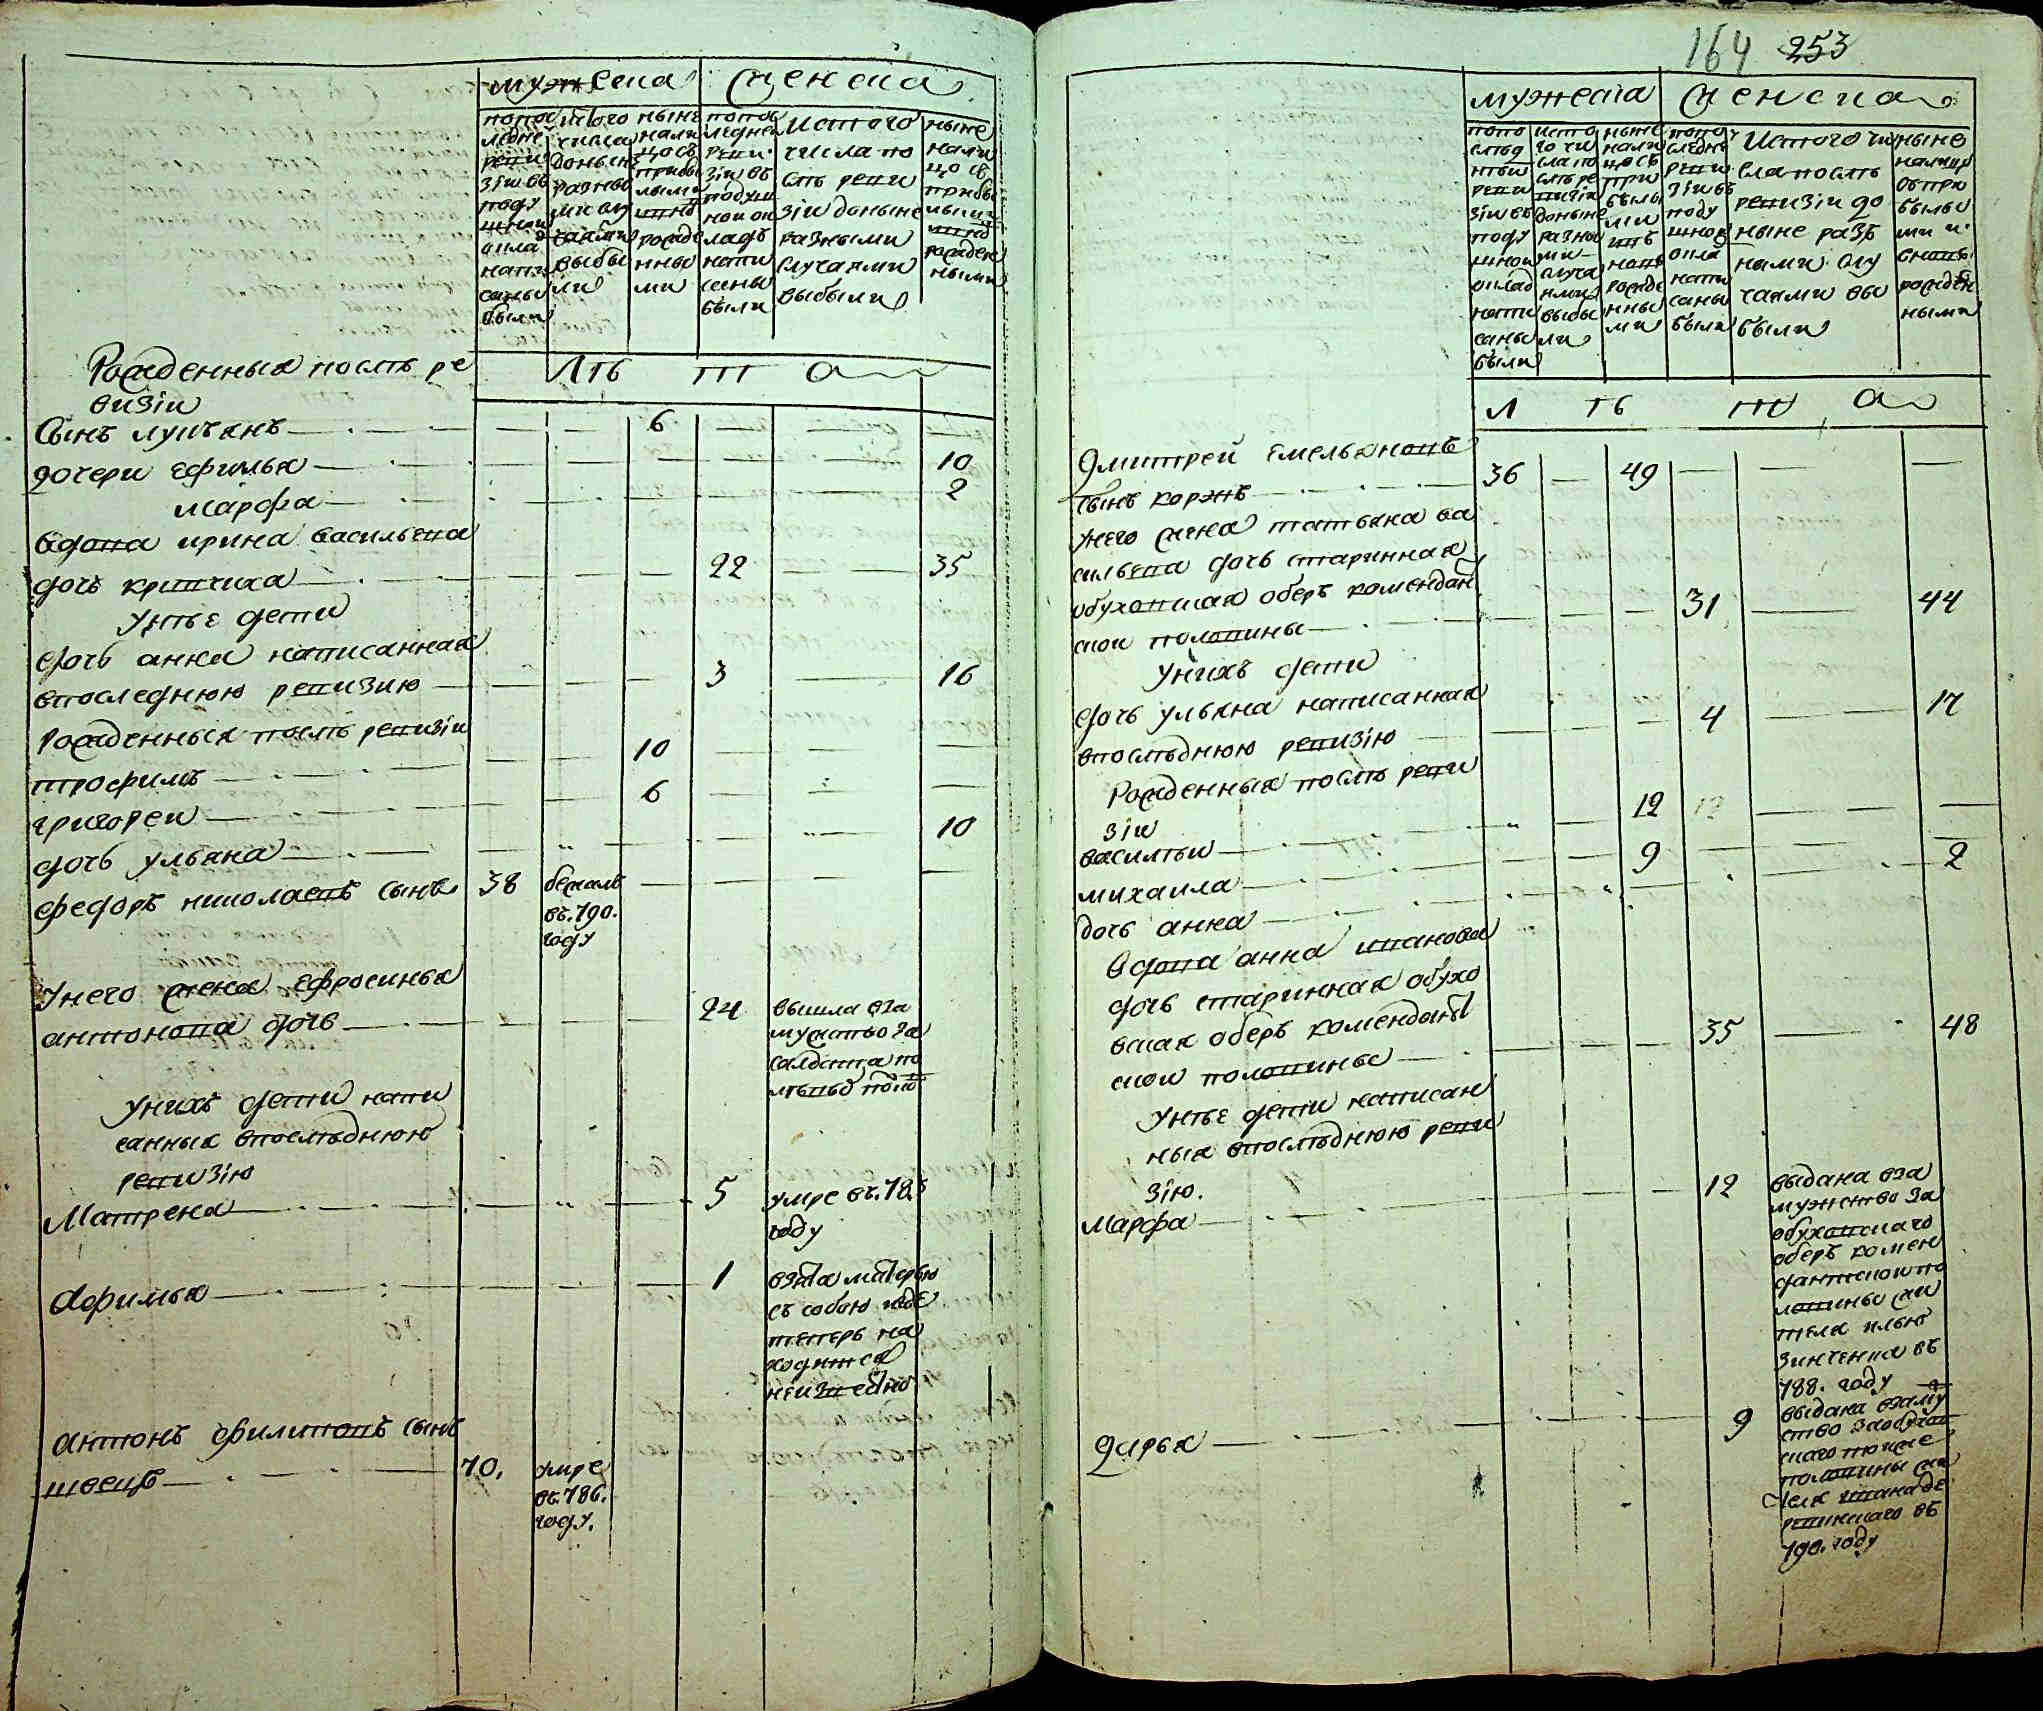 мужеска
женска
попос
ледне
реви
зіи въ
поду
шнои
окла
напи
саны
были
истого
числа
донынѣ
разны
ми слу
чаями
выбы
ли
нынѣ
нали
цо съ
прибы
лыми
и внѣ
рожде
нны
ми
попос
ледней
реви
зіи въ
подуш
ной ок
ладъ
напи
саны
были
Истого
числа по
слѣ реви
зіи доныне
разными
случаями
выбыли
ныне
нали
цо съ
прибы
лыми
рожден
ными
Лѣ т а
Рожденныя послѣ ре
визіи
Сынъ лукъянъ 6
дочери ефимья 10
марфа 2
вдова ирина васильева
дочь кривчиха 22 35
унѣе дети
дочь анна написанная
впоследнюю ревизию 3 16
Рожденныя послѣ ревизіи
трофимъ 10
григореи 6
дочь ульяна 10
федоръ николаевъ сынъ 38 бежалъ
въ.790.
году
Унего жена ефросинья
антонова дочь 24 вышла вза
мужство за
салдата по
унихъ дети напи
санныя впослѣднюю
ревизію
Матрена 5 умре въ.785
году
Афимья 1 взята матерью
съ собою где
теперь на
ходится
неизвестно
антонъ филиповъ сынъ
швецъ 70. умре
въ.786.
году.
164 253
мужеска
женска
попо
слѣд
нѣи
реви
зіи въ
поду
шнои
оклад
напи
саны
были
исто
го чи
сла по
слѣ ре
визіи
доныне
разны
ми
случа
ями
выбы
ли
ныне
нали
цо съ
при
былы
ми
рожде
нны
ми
попо
следне
реви
зіи въ
поду
шной
окла
напи
саны
были
Истого чи
сла послѣ
ревизіи до
ныне разъ
ными слу
чаями вы
были
ныне
налиц
съ при
былы
ми и
рожден
ными
Л ѣ т а
Дмитрей емельяновъ
сынъ коржъ 36 49
унего жена татьяна ва
сильева дочь старинная
обуховская оберъ комендан
скои половины 31 44
Унихъ дети
дочь ульяна написанная
впослѣднюю ревизію 4 17
Рожденныя послѣ реви
зіи
василѣи 12 12
михаила 9
дочь анна 2
вдова анна иванова
дочь старинная обухо
вская оберъ комендант
скои половины 35 48
Унѣе дети написан
ныя впослѣднюю реви
зію.
марфа 12 выдана вза
мужство за
обуховскаго
оберъ комен
дантскои по
ловины жи
теля илью
зинченка въ
788. году
дарья 9 выдана взаму
ство за обухов
скаго тоиже
половины жи
теля ивана де
ревянкаго въ
790. году